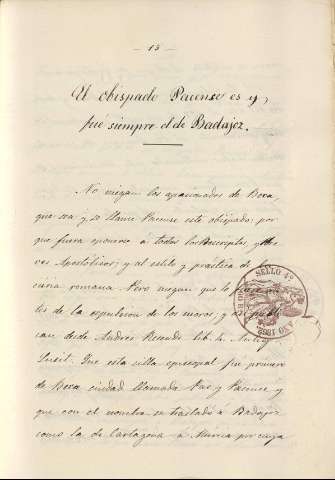 — 13 —
El obispado Pacense es y
fué siempre el de Badajoz.
No niegan los apasionados de Bexa,
que sea y se llame Pacense este obispado: por
que fuera oponerse á todos los Decretales, y Bre
ves Apostólicos; y al estilo y práctica de la
curia romana. Pero niegan que lo
tes de la espulsion de los moros; y
can desde Andres Resende lib. 4. Antiq.
Lusit. Que esta silla episcopal fué primero
de Bexa ciudad llamada Pax y Pacense y
que con el nombre se trasladó á Badajoz
como la de Cartagena á Murcia por cuya
SELLO 4º
AÑO